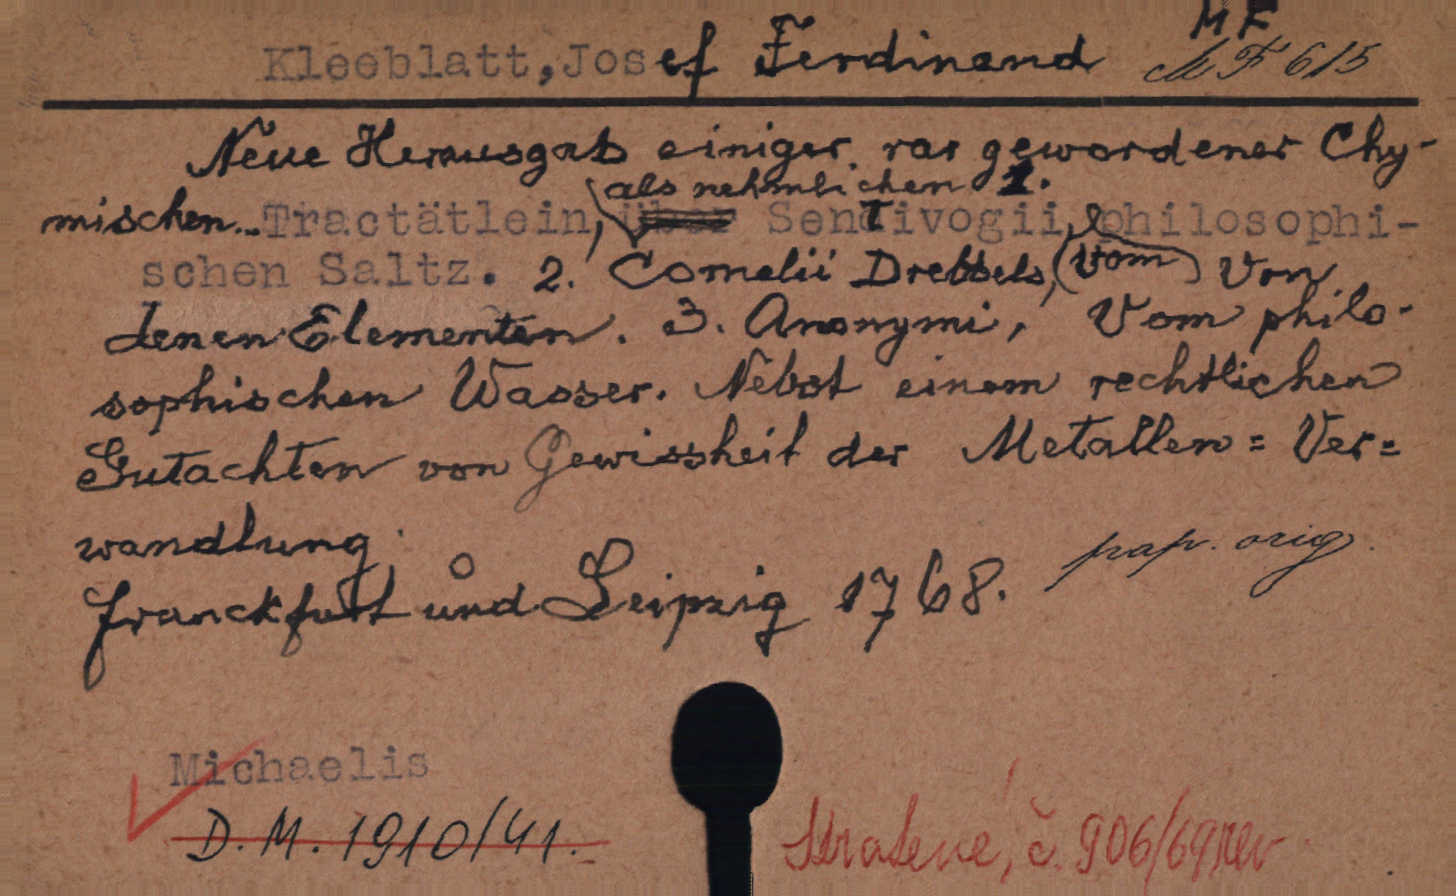 Kleeblatt, Josef Ferdinand MF
MF 615
Neue Herausgab einiger rar gewordener Chy-
als nehmlichen 1.
mischen... Tractätlein, über Sendivogii, philosophi-
schen Saltz. 2. Cornelii Drebbels, (vom) Von
denen Elementen. 3. Anonymi, Vom philo-
sophischen Wasser. Nebst einem rechtlichen
Gutachten von Gewissheit der Metallen = Ver=
wandlung.
Franckfurt und Leipzig 1768. pap. orig.
Michaelis
D.M. 1910/41.
Ztracené, č. 906/69 rev